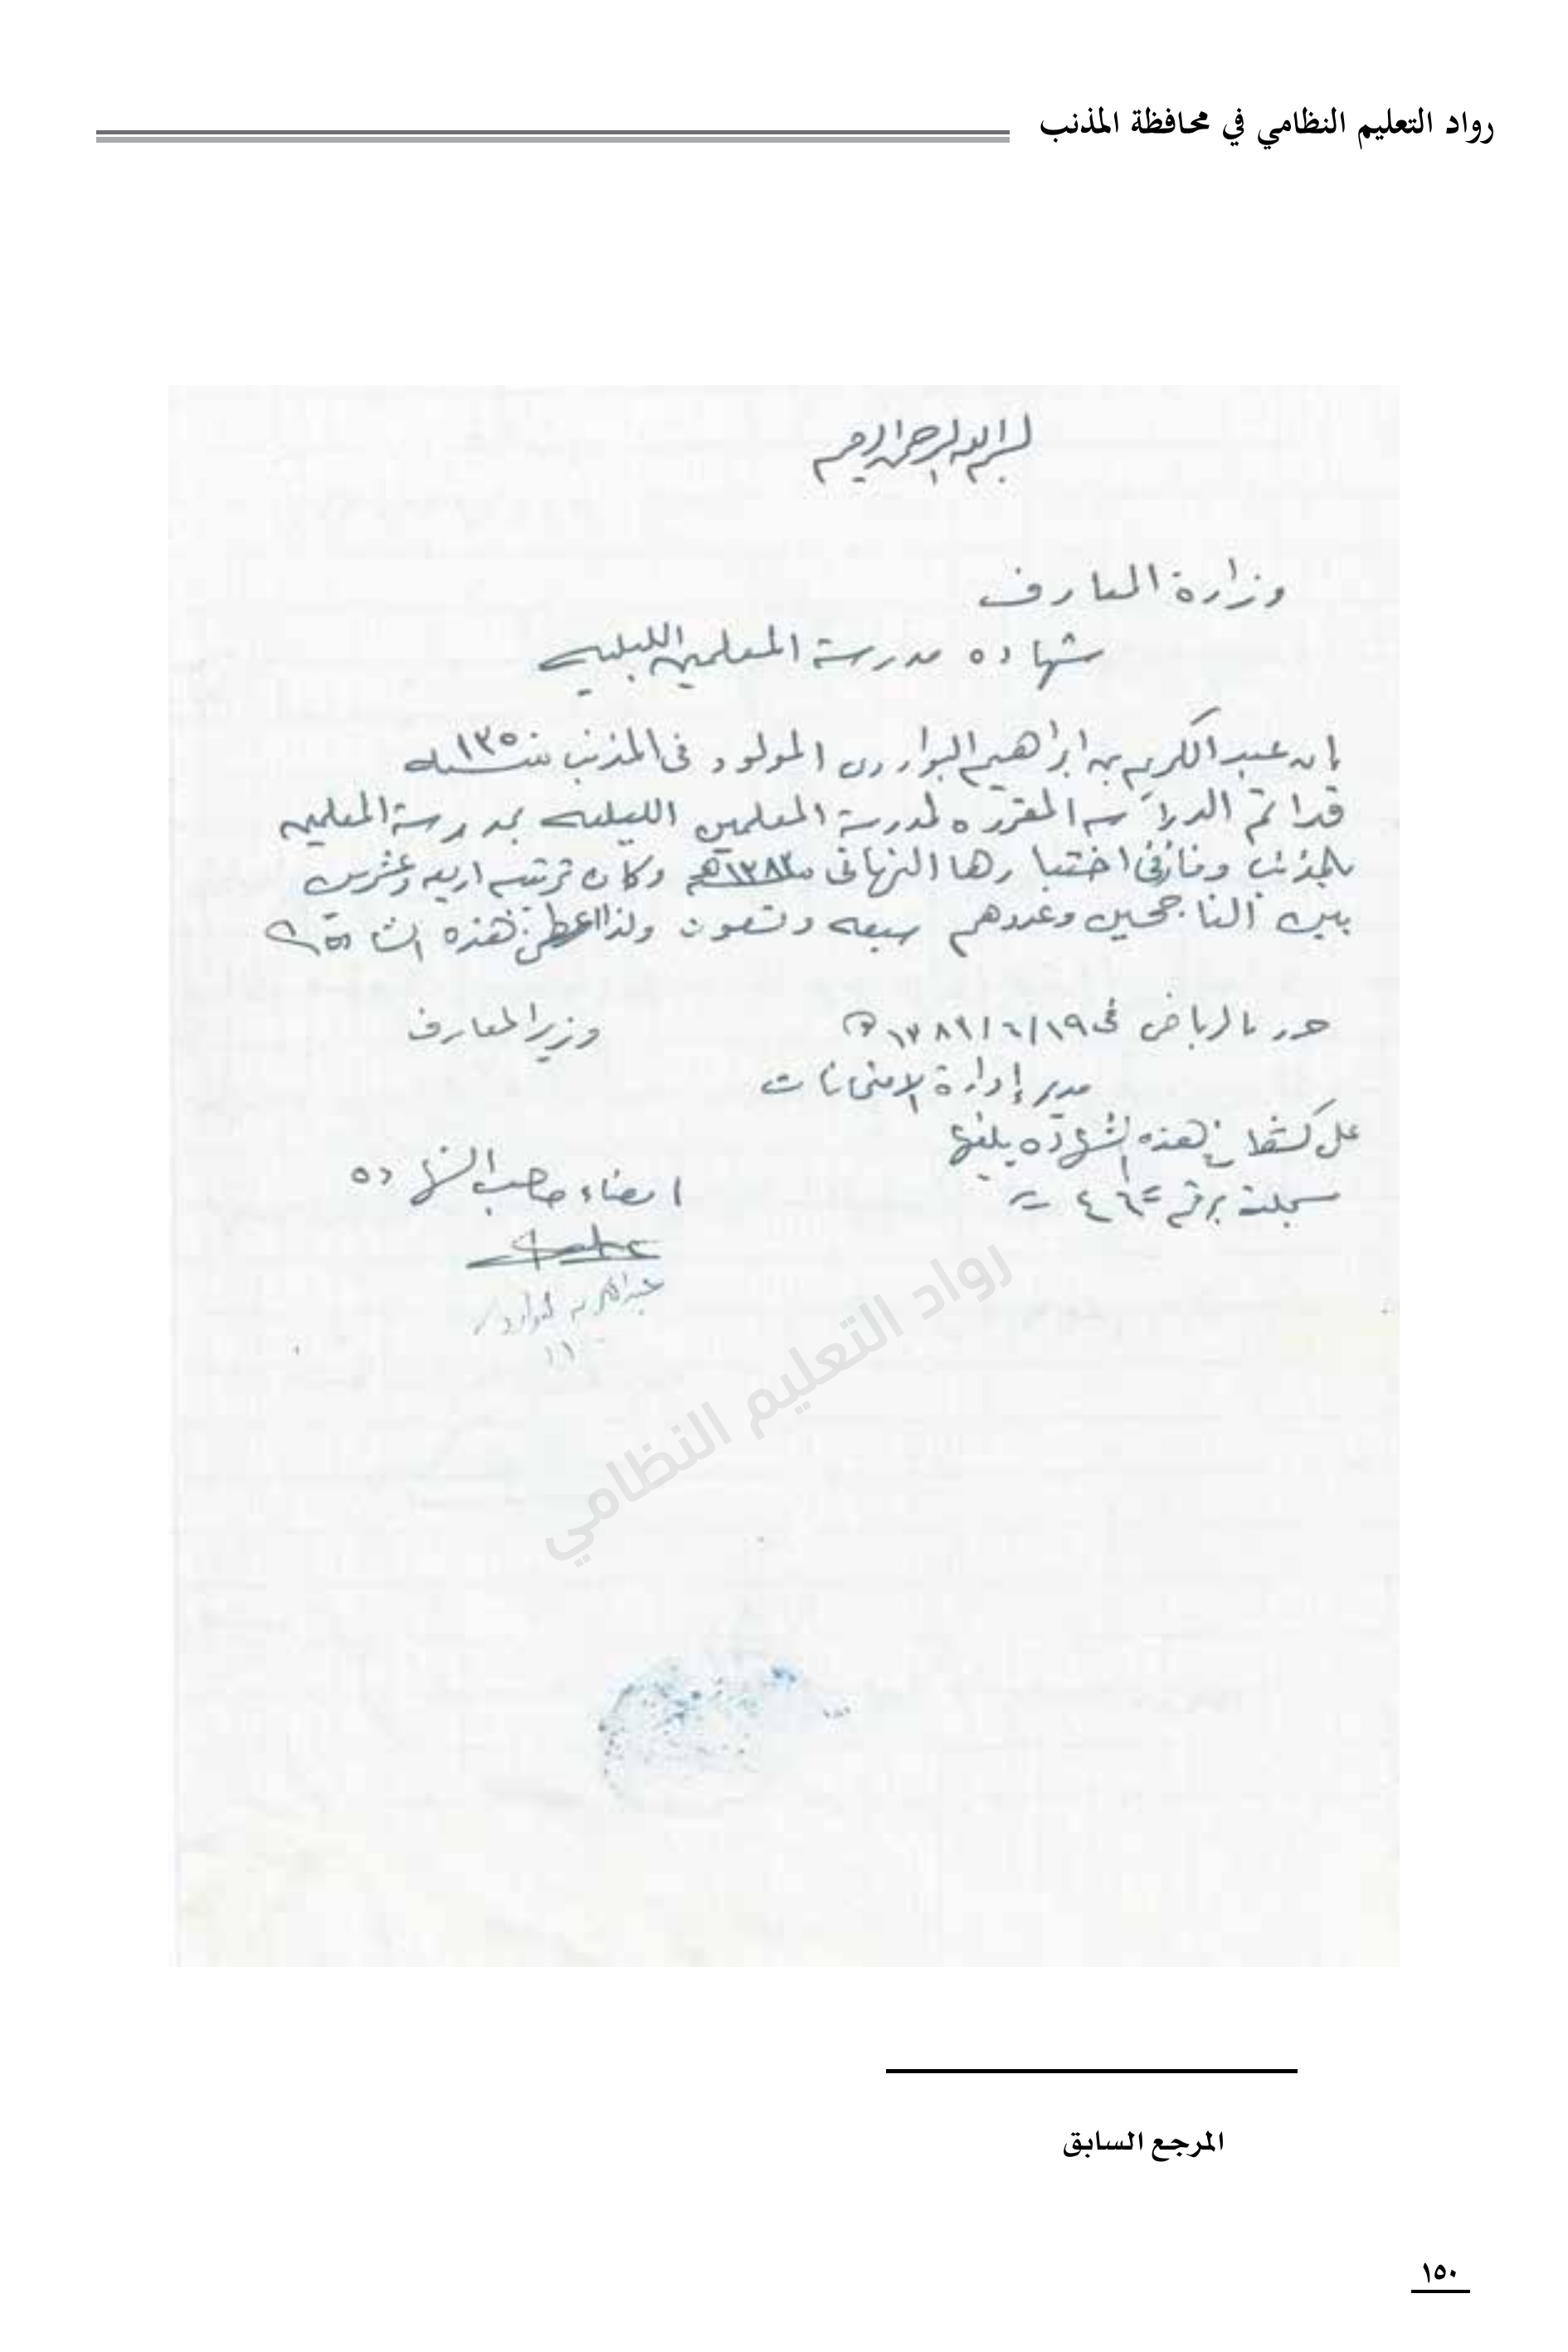 رواد التعليم النظامي في محافظة المذنب
بسم الله الرحمن الرحيم
وزارة المعارف
شهاده مدرسة المعلمين الليليه
إن عبد الكريم بن ابراهيم البواردى المولود فى المذنب سنه ١٣٥٠
قد اتم الدراسه المقرره لمدرسة المعلمين الليليه بمدرسة المعلمين
بالمذنب وفاز فى اختبارها النهائى ١٣٨٢هـ وكان ترتيبه اربعه وعشرين
بين الناجحين وعددهم سبعه وتسعون ولذا اعطى هذه
حرر بالرياض فى ١٩/٦/ هـ
وزير المعارف
مدير إدارة الامتحانات
هذه الشهاده يلغيها
امضاء صاحب الشهاده
سجلت برقم ٤٦
عبدالكريم البواردي
رواد التعليم النظامي
المرجع السابق
١٥٠